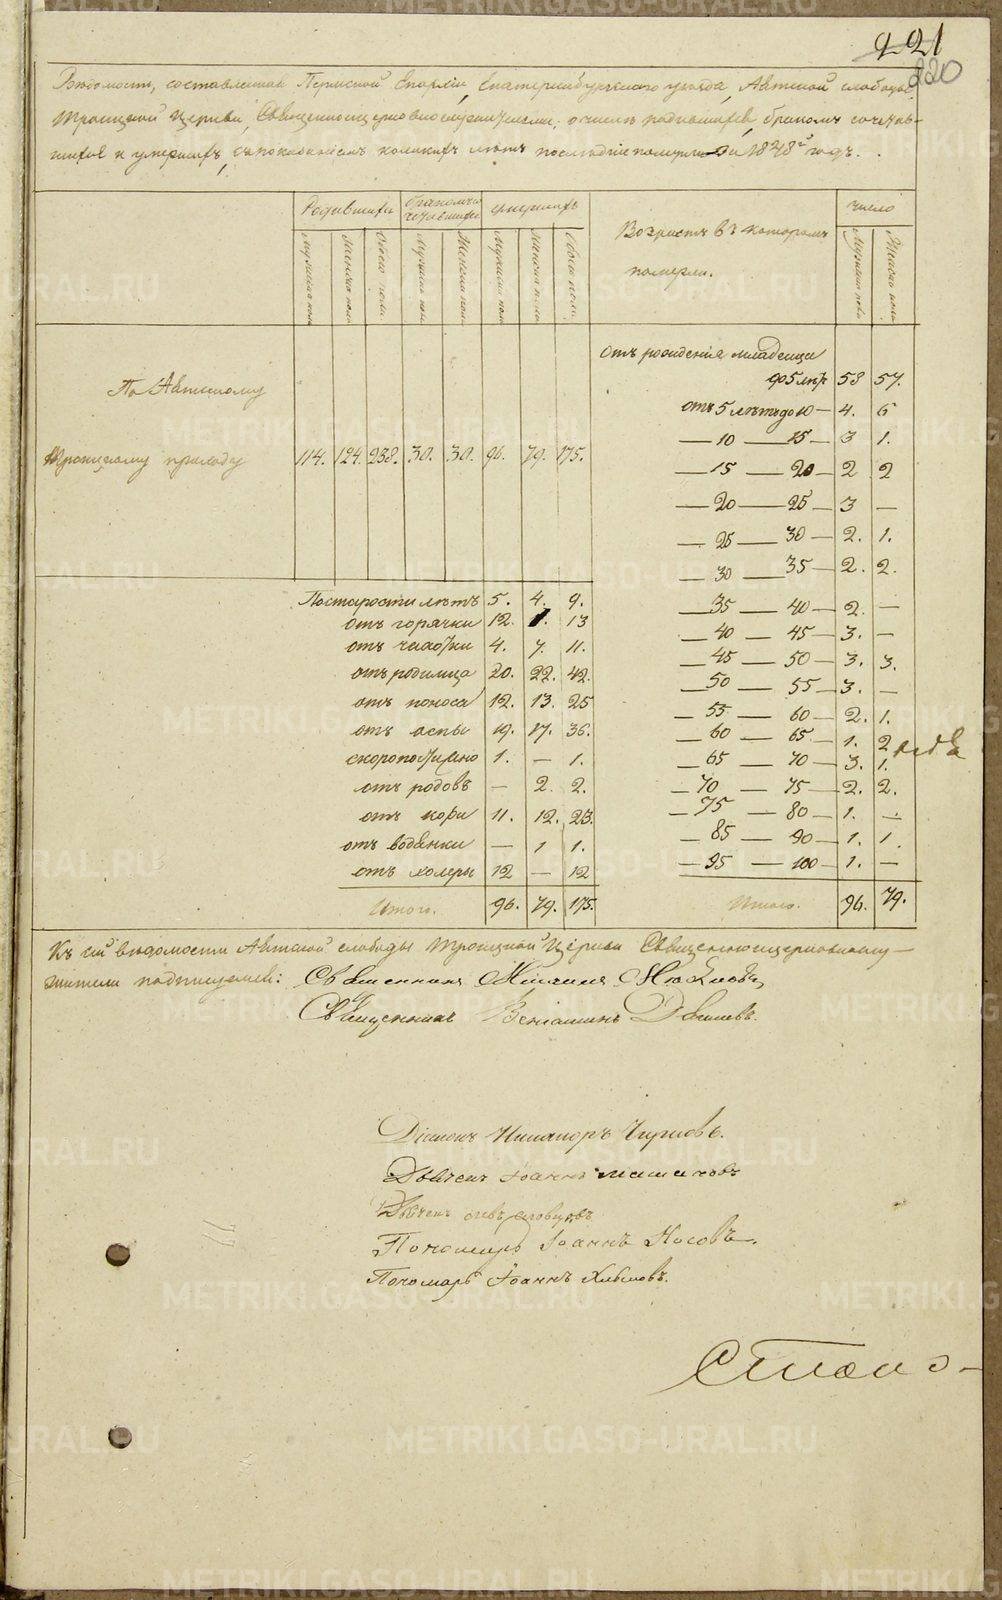 221
220
Ведомость, составленная Пермской Епархіи, Екатеринбургскаго уезда, Аятской слободы
Троицкой Церкви, Священноцерковнослужителями, о числе родившихся, бракомъ сочетав-
шихся и умершихъ, съ показаніемъ коликихъ летъ последніе померли за 1848й годъ.
Родившихся
бракомъ сочетавшихся
умершихъ
Возрастъ въ которомъ
померли.
число
Мужска пола
Женска пола
Обоего пола
Мужска пола
Женска пола
Мужска пола
Женска пола
Обоего пола
Мужска пола
Женска пола
По Аятскому
Троицкому приходу 114. 124. 238. 30. 30. 96. 79. 175.
Отъ рожденія младенцы
до 5 летъ 58 57.
отъ 5 летъ до 10 — 4. 6
— 10 — 15 — 3 1.
— 15 — 20 — 2 2
— 20 — 25 — 3 —
— 25 — 30 — 2. 1.
— 30 — 35 — 2. 2.
— 35 — 40 — 2. —
— 40 — 45 — 3. —
— 45 — 50 — 3. 3.
— 50 — 55 — 3. —
— 55 — 60 — 2. 1.
— 60 — 65 — 1. 2
— 65 — 70 — 3. 1.
— 70 — 75 — 2. 2.
— 75 — 80 — 1. —
— 85 — 90 — 1. 1.
— 95 — 100 — 1. —
Итого. 96. 79.
По старости летъ 5. 4. 9.
отъ горячки 12. 1. 13
отъ чахотки 4. 7. 11.
отъ родимца 20. 22. 42.
отъ поноса 12. 13. 25
отъ оспы 19. 17. 36.
скоропостижно 1. — 1.
отъ родовъ — 2. 2.
отъ кори 11. 12. 23.
отъ водянки — 1 1.
отъ холеры 12 — 12
Итого. 96. 79. 175.
Къ сей ведомости Аятской слободы Троицкой Церкви Священноцерковнослу-
жители подписуемся: Священникъ
Священникъ Веніаминъ
Діаконъ Никаноръ
Дьячекъ Іоаннъ
Дьячекъ
Пономарь Іоаннъ Носовъ.
Пономарь Іоаннъ
METRIKI.GASO-URAL.RU